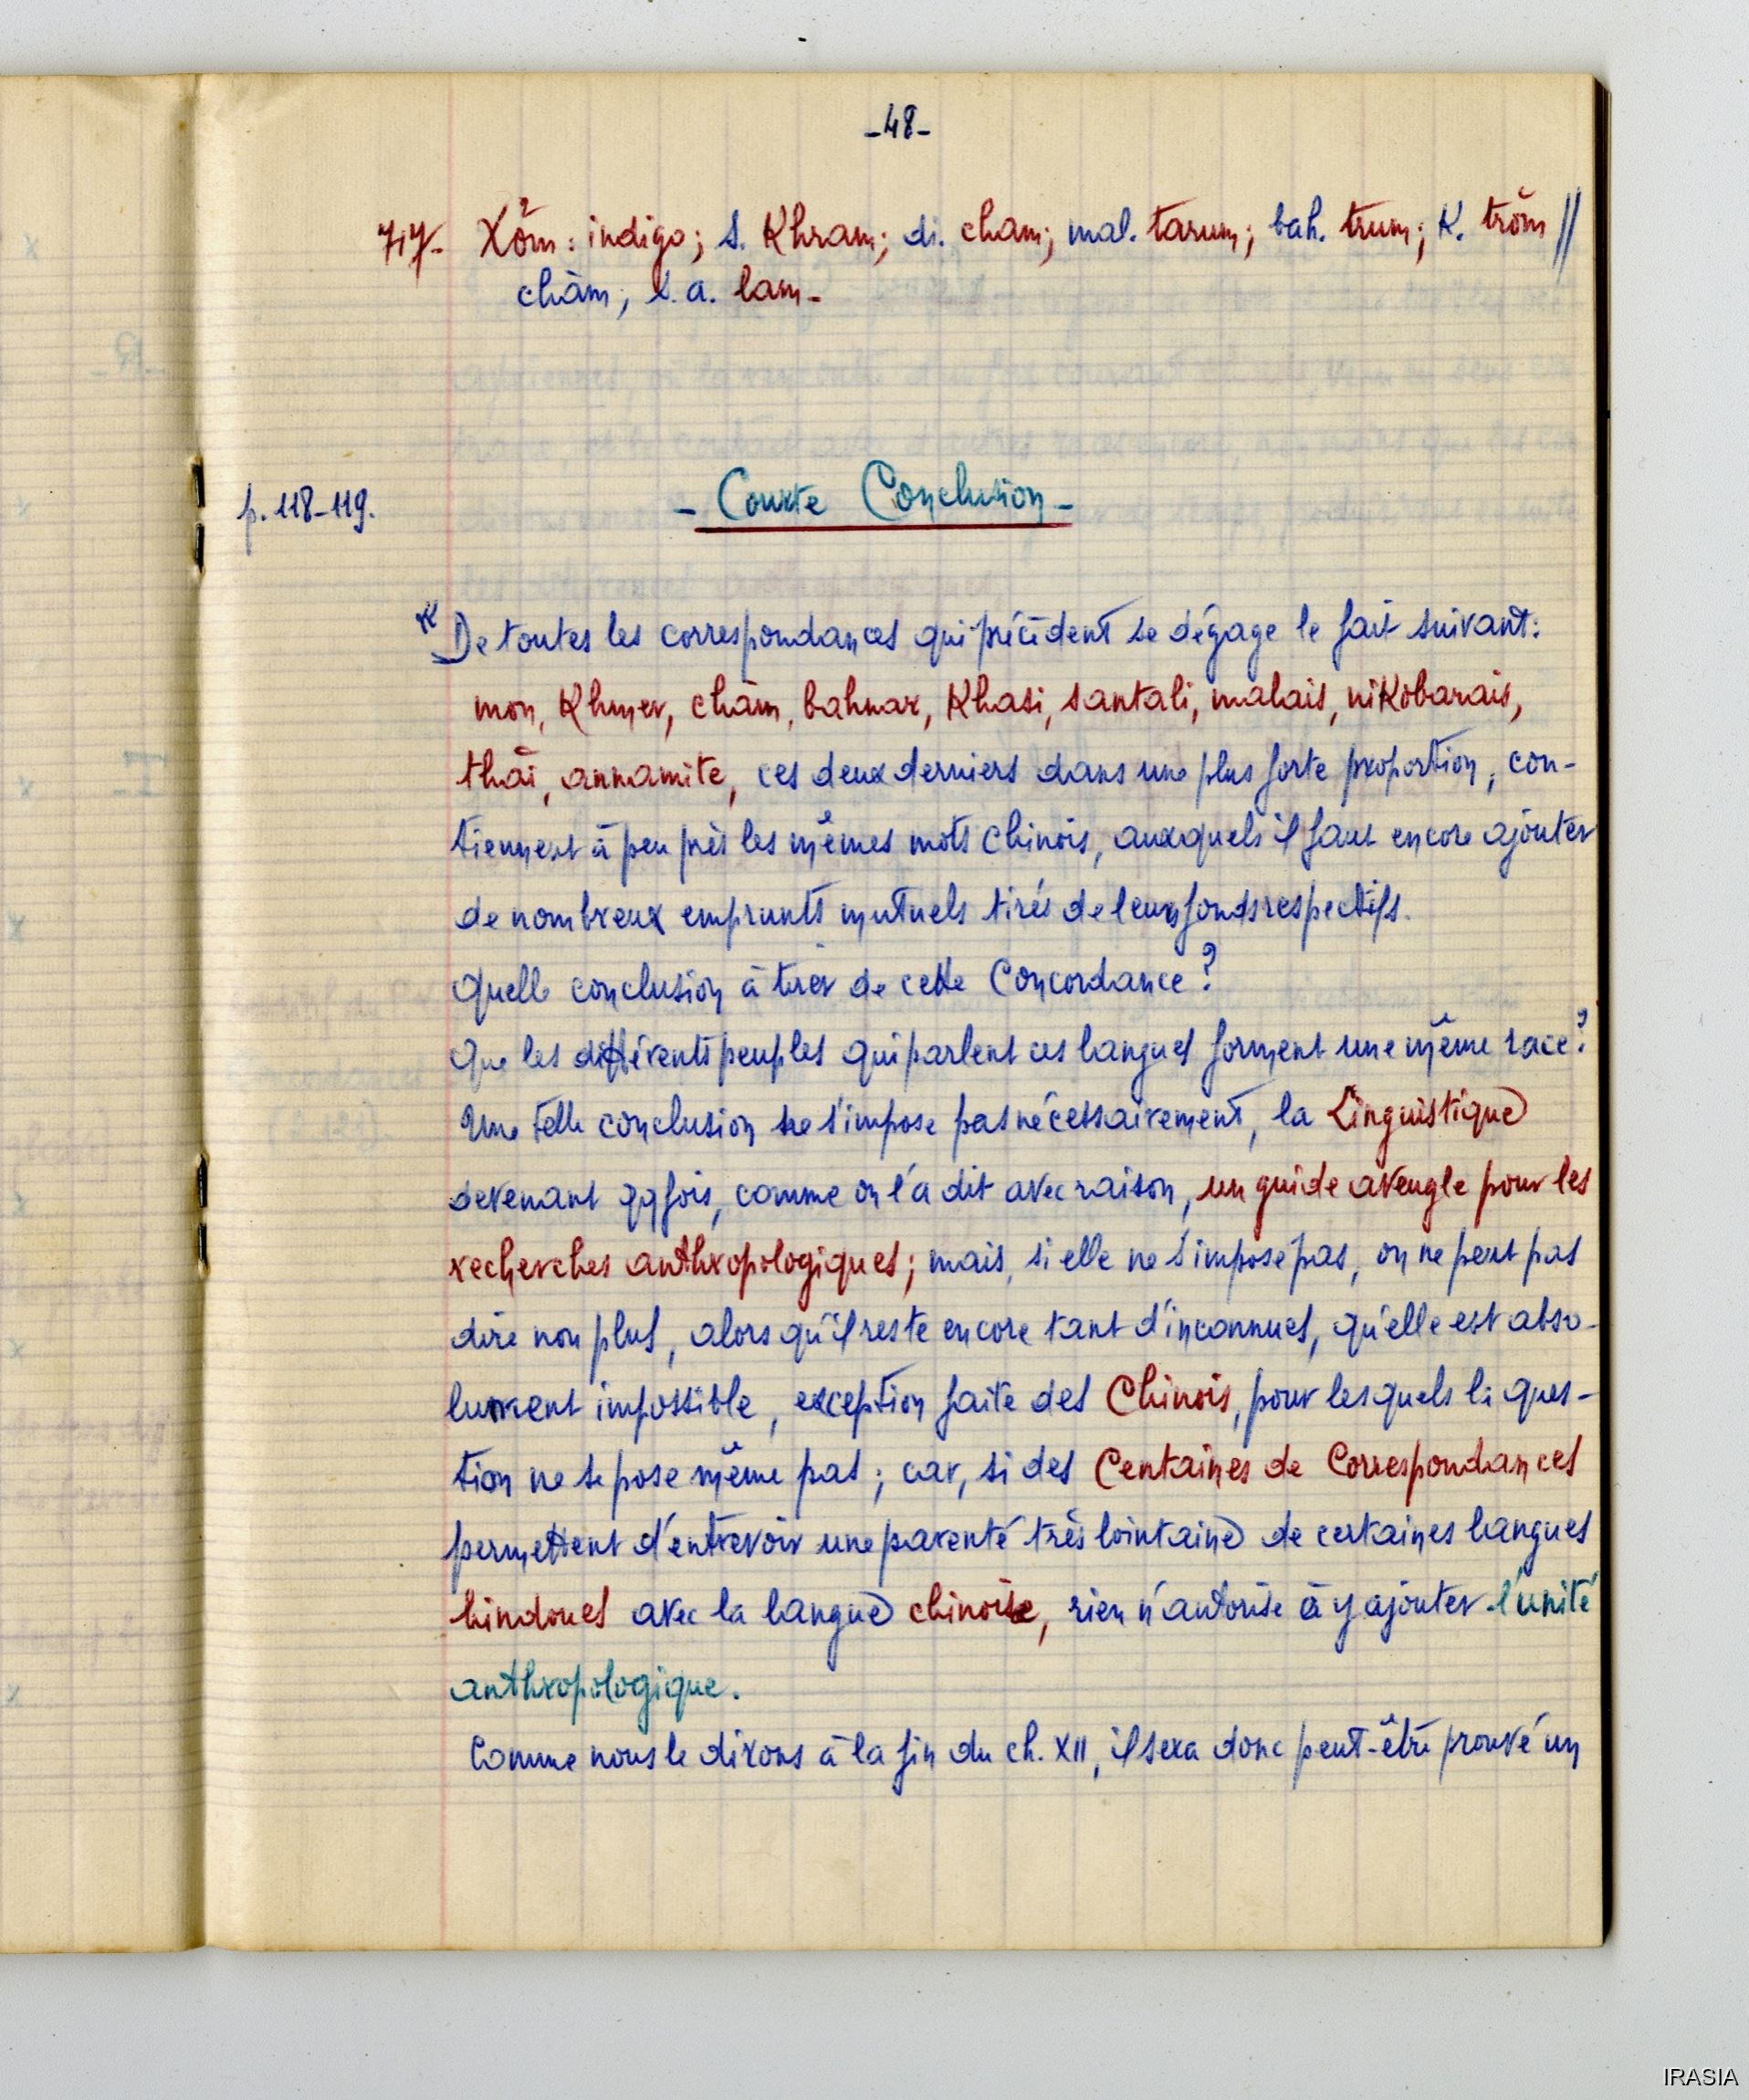 -48-
717- Xŏm: indigo; s. Khram; di. cham; mal. tarum; bah. trum; K. trŏm //
chàm; s.a. lam-
p. 118-119.
- Courte Conclusion -
De toutes les correspondances qui précèdent se dégage le fait suivant:
mon, Khmer, chàm, bahnar, Khasi, santali, malais, niKobarais,
thai, annamite, ces deux derniers dans une plus forte proportion, con-
tiennent à peu près les mêmes mots chinois, auxquels il faut encore ajouter
de nombreux emprunts mutuels tirés de leurs fonds respectifs.
Quelle conclusion à tirer de cette Concordance?
Que les différents peuples qui parlent ces langues forment une même race?
Une telle conclusion ne s'impose pas nécessairement, la Linguistique
devenant qqfois, comme on l'a dit avec raison, un guide aveugle pour les
recherches anthropologiques; mais, si elle ne s'impose pas, on ne peut pas
dire non plus, alors qu'il reste encore tant d'inconnues, qu'elle est abso-
lument impossible, exception faite des Chinois, pour lesquels la ques-
tion ne se pose même pas; car, si des Centaines de Correspondances
permettent d'entrevoir une parenté très lointaine de certaines langues
hindoues avec la langue chinoise, rien n'autorise à y ajouter l'unité
anthropologique.
Comme nous le dirons à la fin du ch. XII, il sera donc peut-être prouvé un
IRASIA